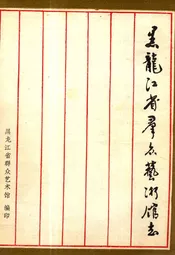 黑龍江省羣众藝術馆志
黑龙江省群众艺术馆 编印